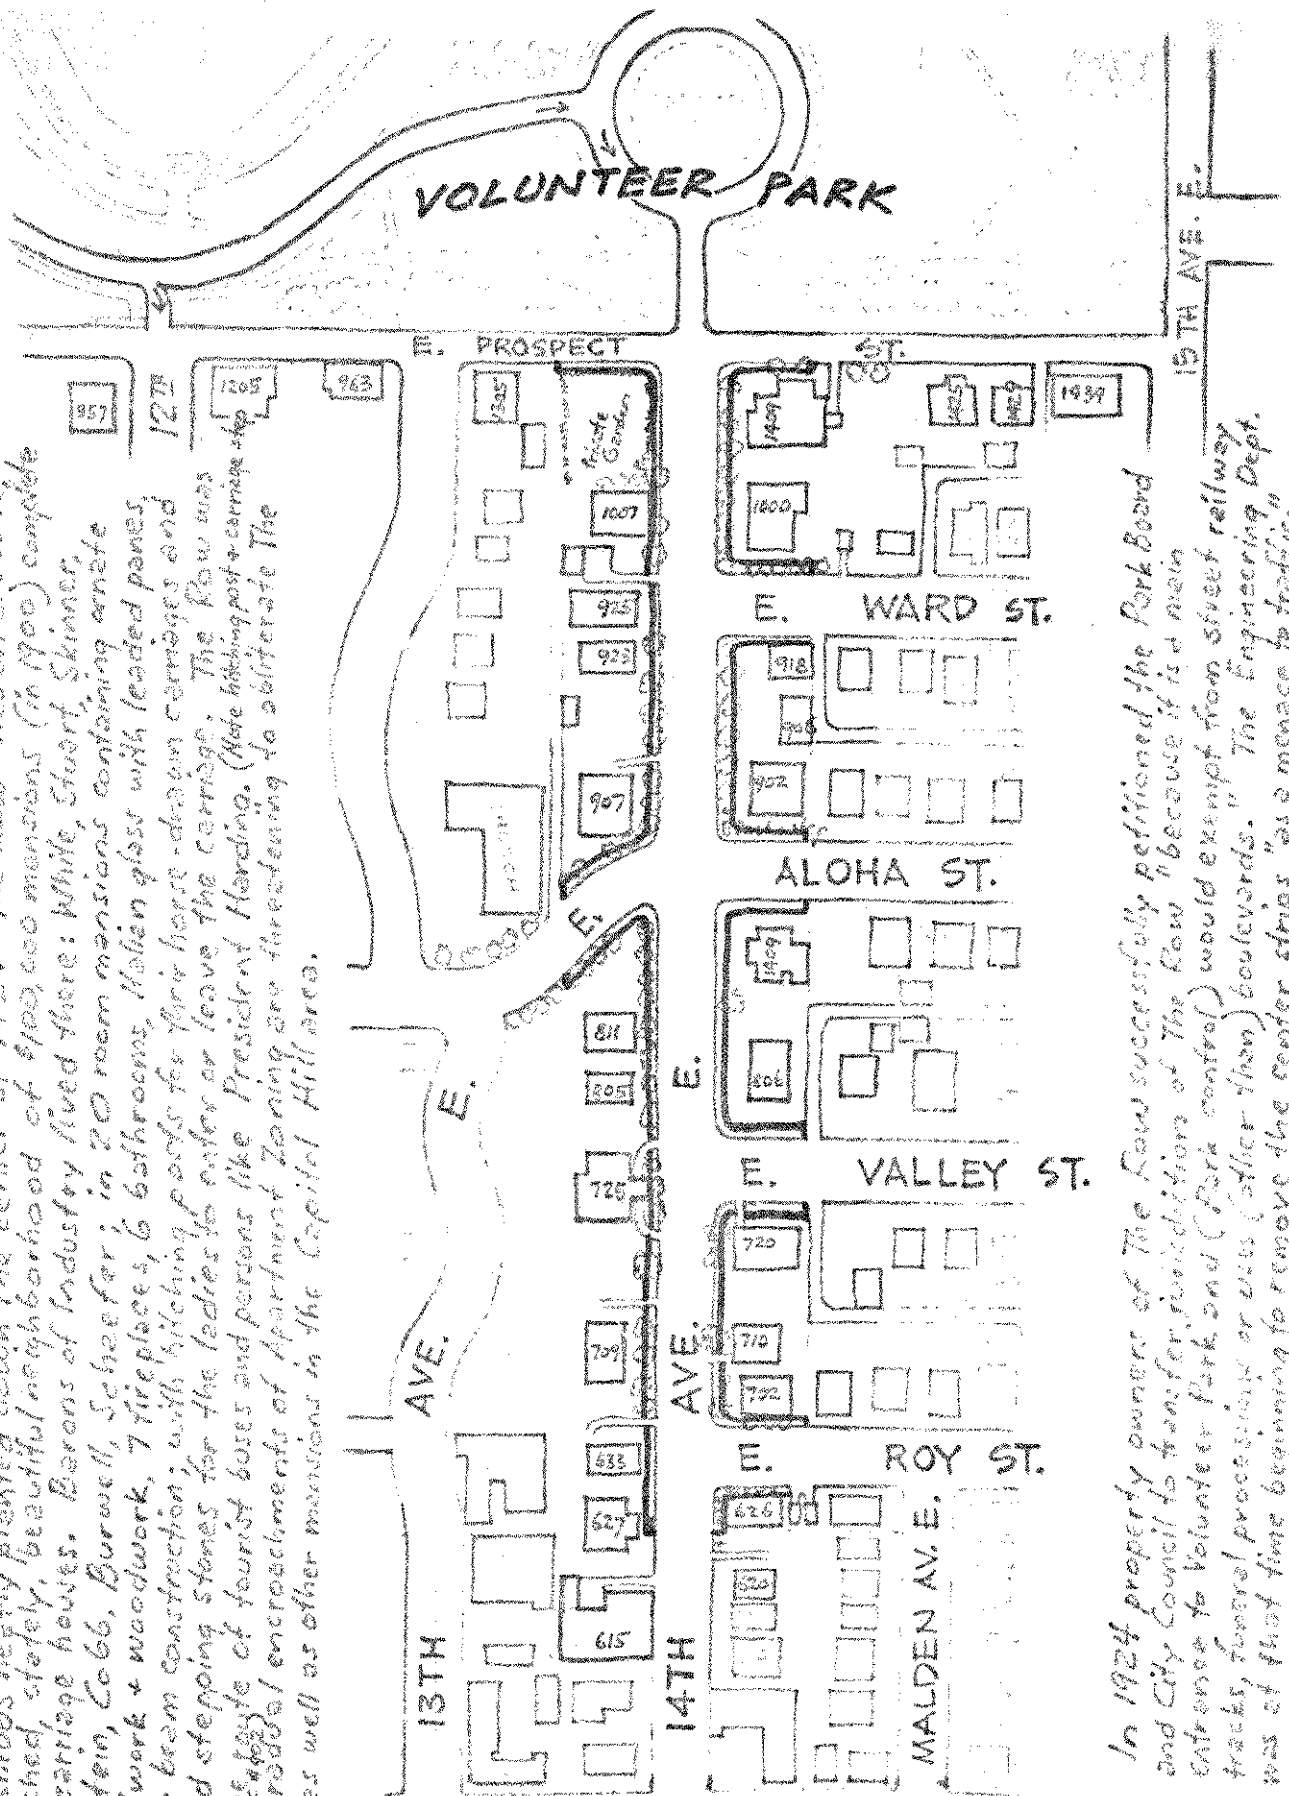 VOLUNTEER PARK
15TH AVE. E.
E. PROSPECT ST.
957
12TH
1205
963
1325
Private Garden
1007
925
923
907
1409
1000
1425
1429
1439
E. WARD ST.
918
902
E. ALOHA ST.
1409
806
811
805
E.
E.
E. VALLEY ST.
725
720
709
710
702
AVE.
AVE.
E. ROY ST.
633
627
626
615
13TH
14TH
MALDEN AV. E.
planted down the center
stately, beautiful neighborhood of $100,000 mansions (in 1900) complete
carriage houses. Barons of Industry lived there: White, Stuart, Skinner,
Cobb, Burwell, Schaefer; in 20 room mansions containing ornate
work + woodwork, 7 fireplaces, 6 bathrooms, Italian glass with leaded panes,
beam construction; with hitching posts for their horse-drawn carriages and
stepping stones for the ladies to enter or leave the carriage. The Row was
route of tourist buses and persons like President Harding. (Note hitching post & carriage step
encroachments of Apartment Zoning are threatening to obliterate The
as well as other mansions in the Capitol Hill area.
In 1924 property owners of The Row successfully petitioned the Park Board
and City Council to transfer jurisdiction of The Row "because it is a main
entrance to Volunteer Park and (Park control) would exempt from street railway
tracks, funeral processions or uses (other than) boulevards." The Engineering Dept.
was at that time beginning to remove the center strips "as a menace to traffic"